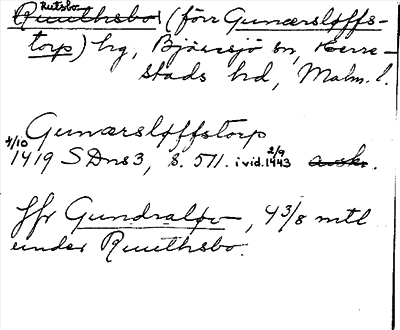 Rutsbo
Ruuthsbo (förr Gunærsløffs-
torp) hg, Bjäresjö sn, Herre-
stads hd, Malm. l.
Gunærsløffstorp
4/10 1419 SDns 3, s. 511. i vid. 2/9 1443 avskr.
Jfr Gundralöv, 4 3/8 mtl
under Ruuthsbo.